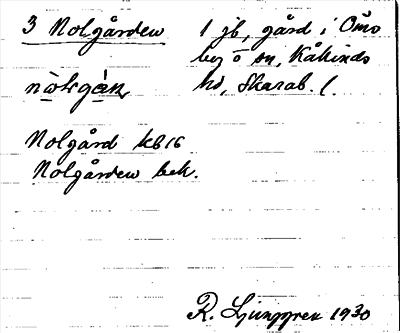 3 Nolgården 1 jb, gård i Ömo
by o sn, Kåkinds
hd, Skarab. l.
Nolgård kb16
Nolgården bek.
R. Ljunggren 1930